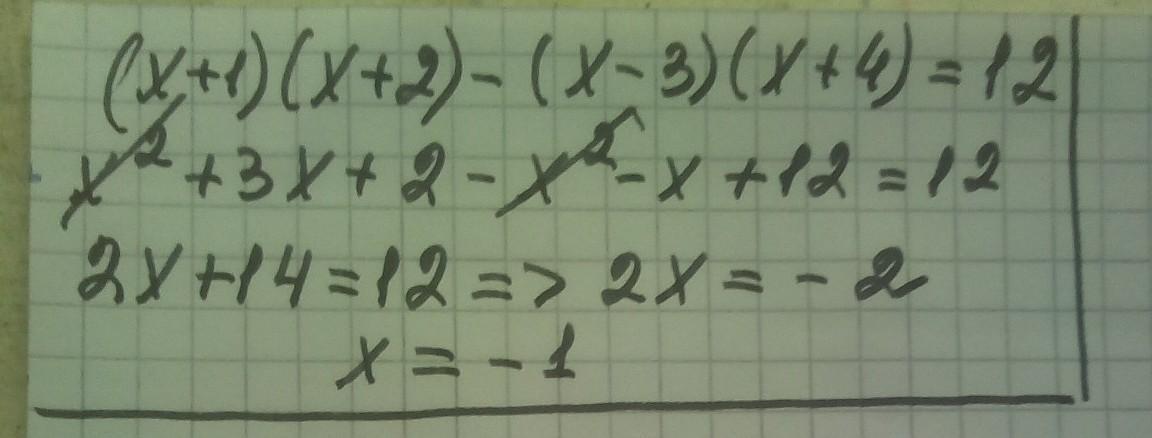 (x+1)(x+2)-(x-3)(x+4)=12
x²+3x+2-x²-x+12=12
2x+14=12=>2x=-2
x=-1